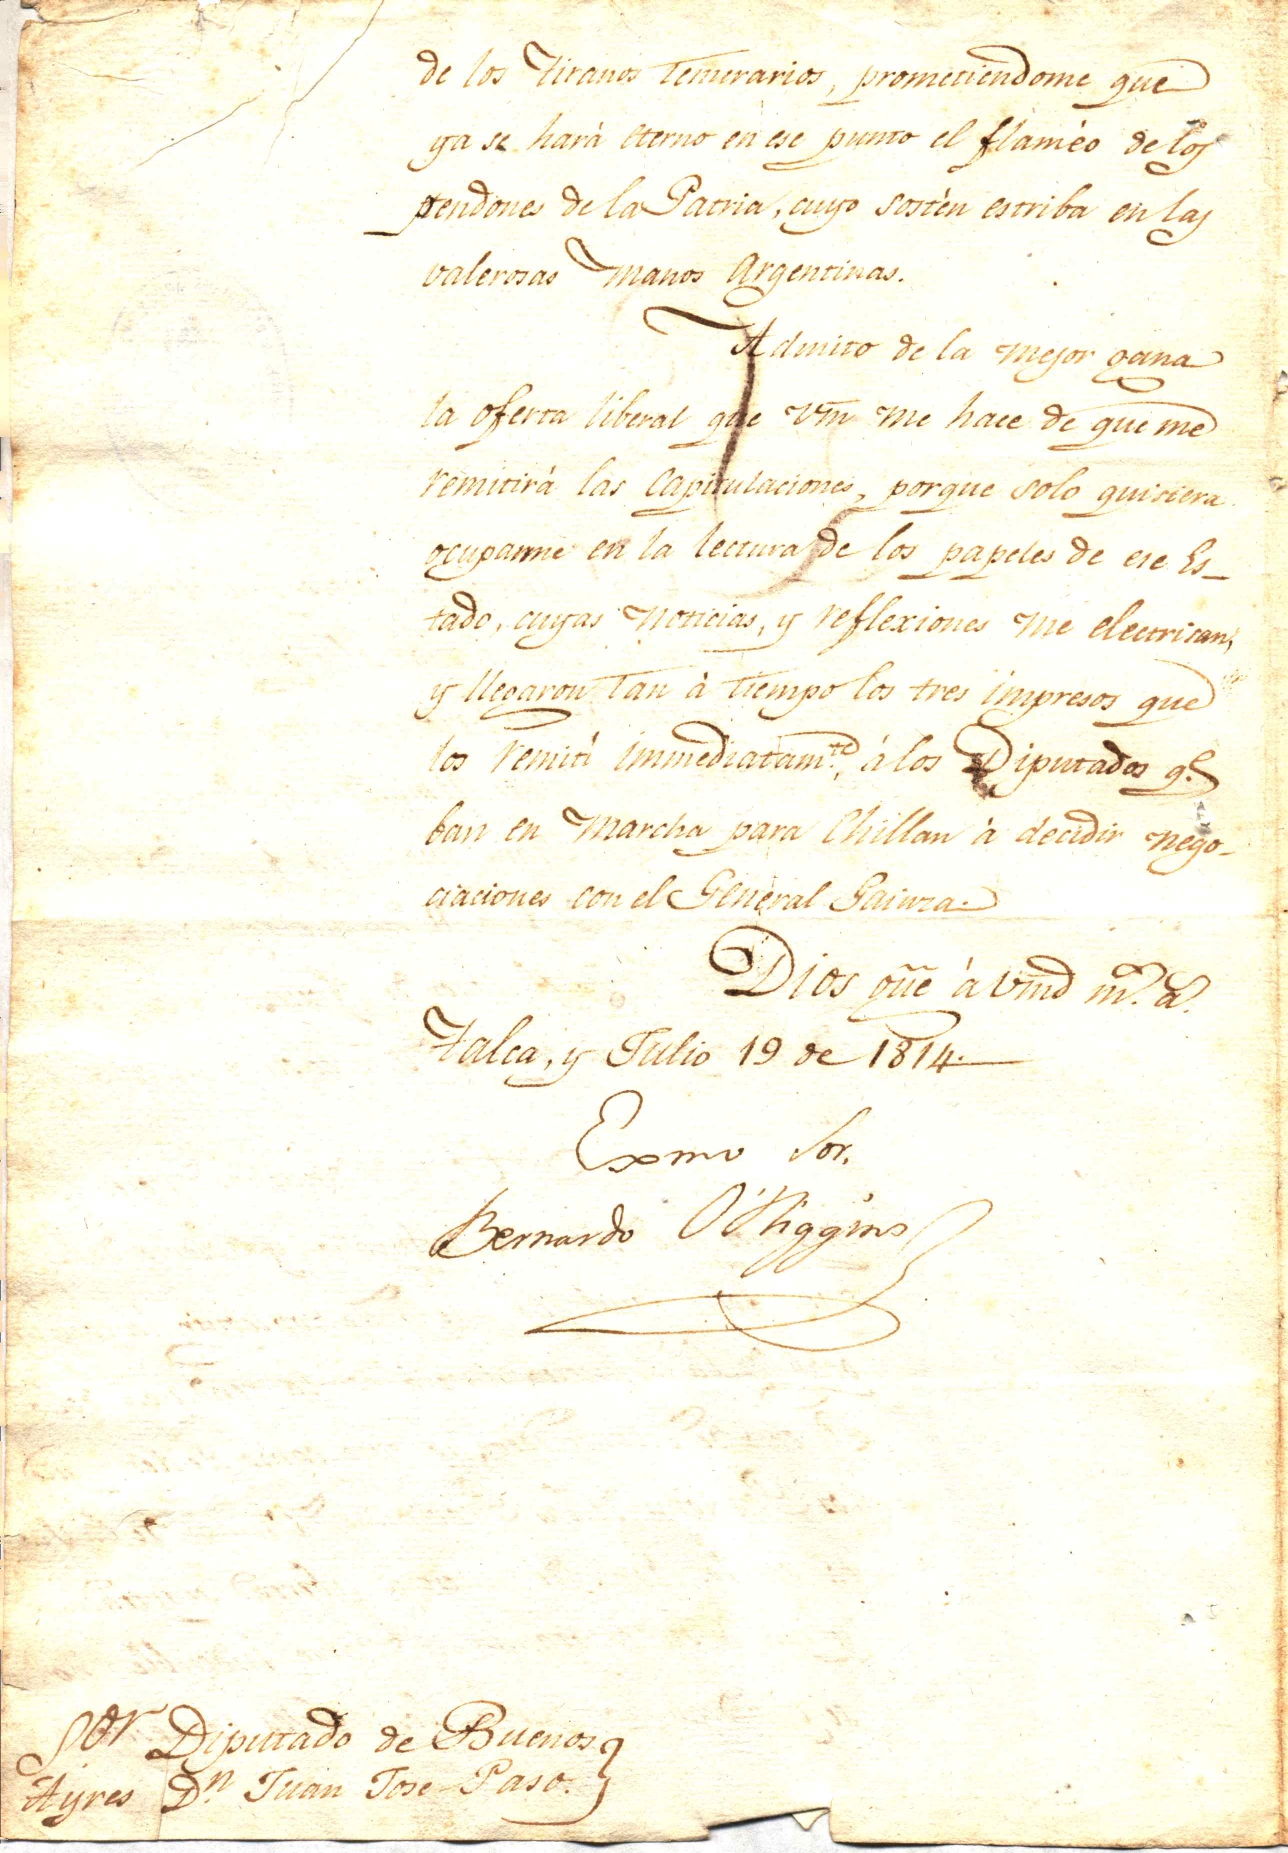 de los Tiranos temerarios, prometiendome que
ya se hará eterno en ese punto el flaméo de los
pendones de la Patria, cuyo sostén estriba en las
valerosas manos Argentinas.
Admito de la mejor gana
la oferta liberal que Vm me hace de que me
remitirá las Capitulaciones, porque solo quisiera
ocuparme en la lectura de los papeles de ese Es-
tado, cuyas noticias, y reflexiones me electrisan,
y llegaron tan à tiempo los tres impresos que
los remití immediatam.te à los Diputados q.e
ban en marcha para Chillan à decidir nego-
ciaciones con el General Gainza.
Dios gũe à Vmd m.s a.s
Talca, y Julio 19 de 1814.
Exmo Sor.
Bernardo O'Higgins
Sor Diputado de Buenos
Ayres D.n Juan Jose Paso.